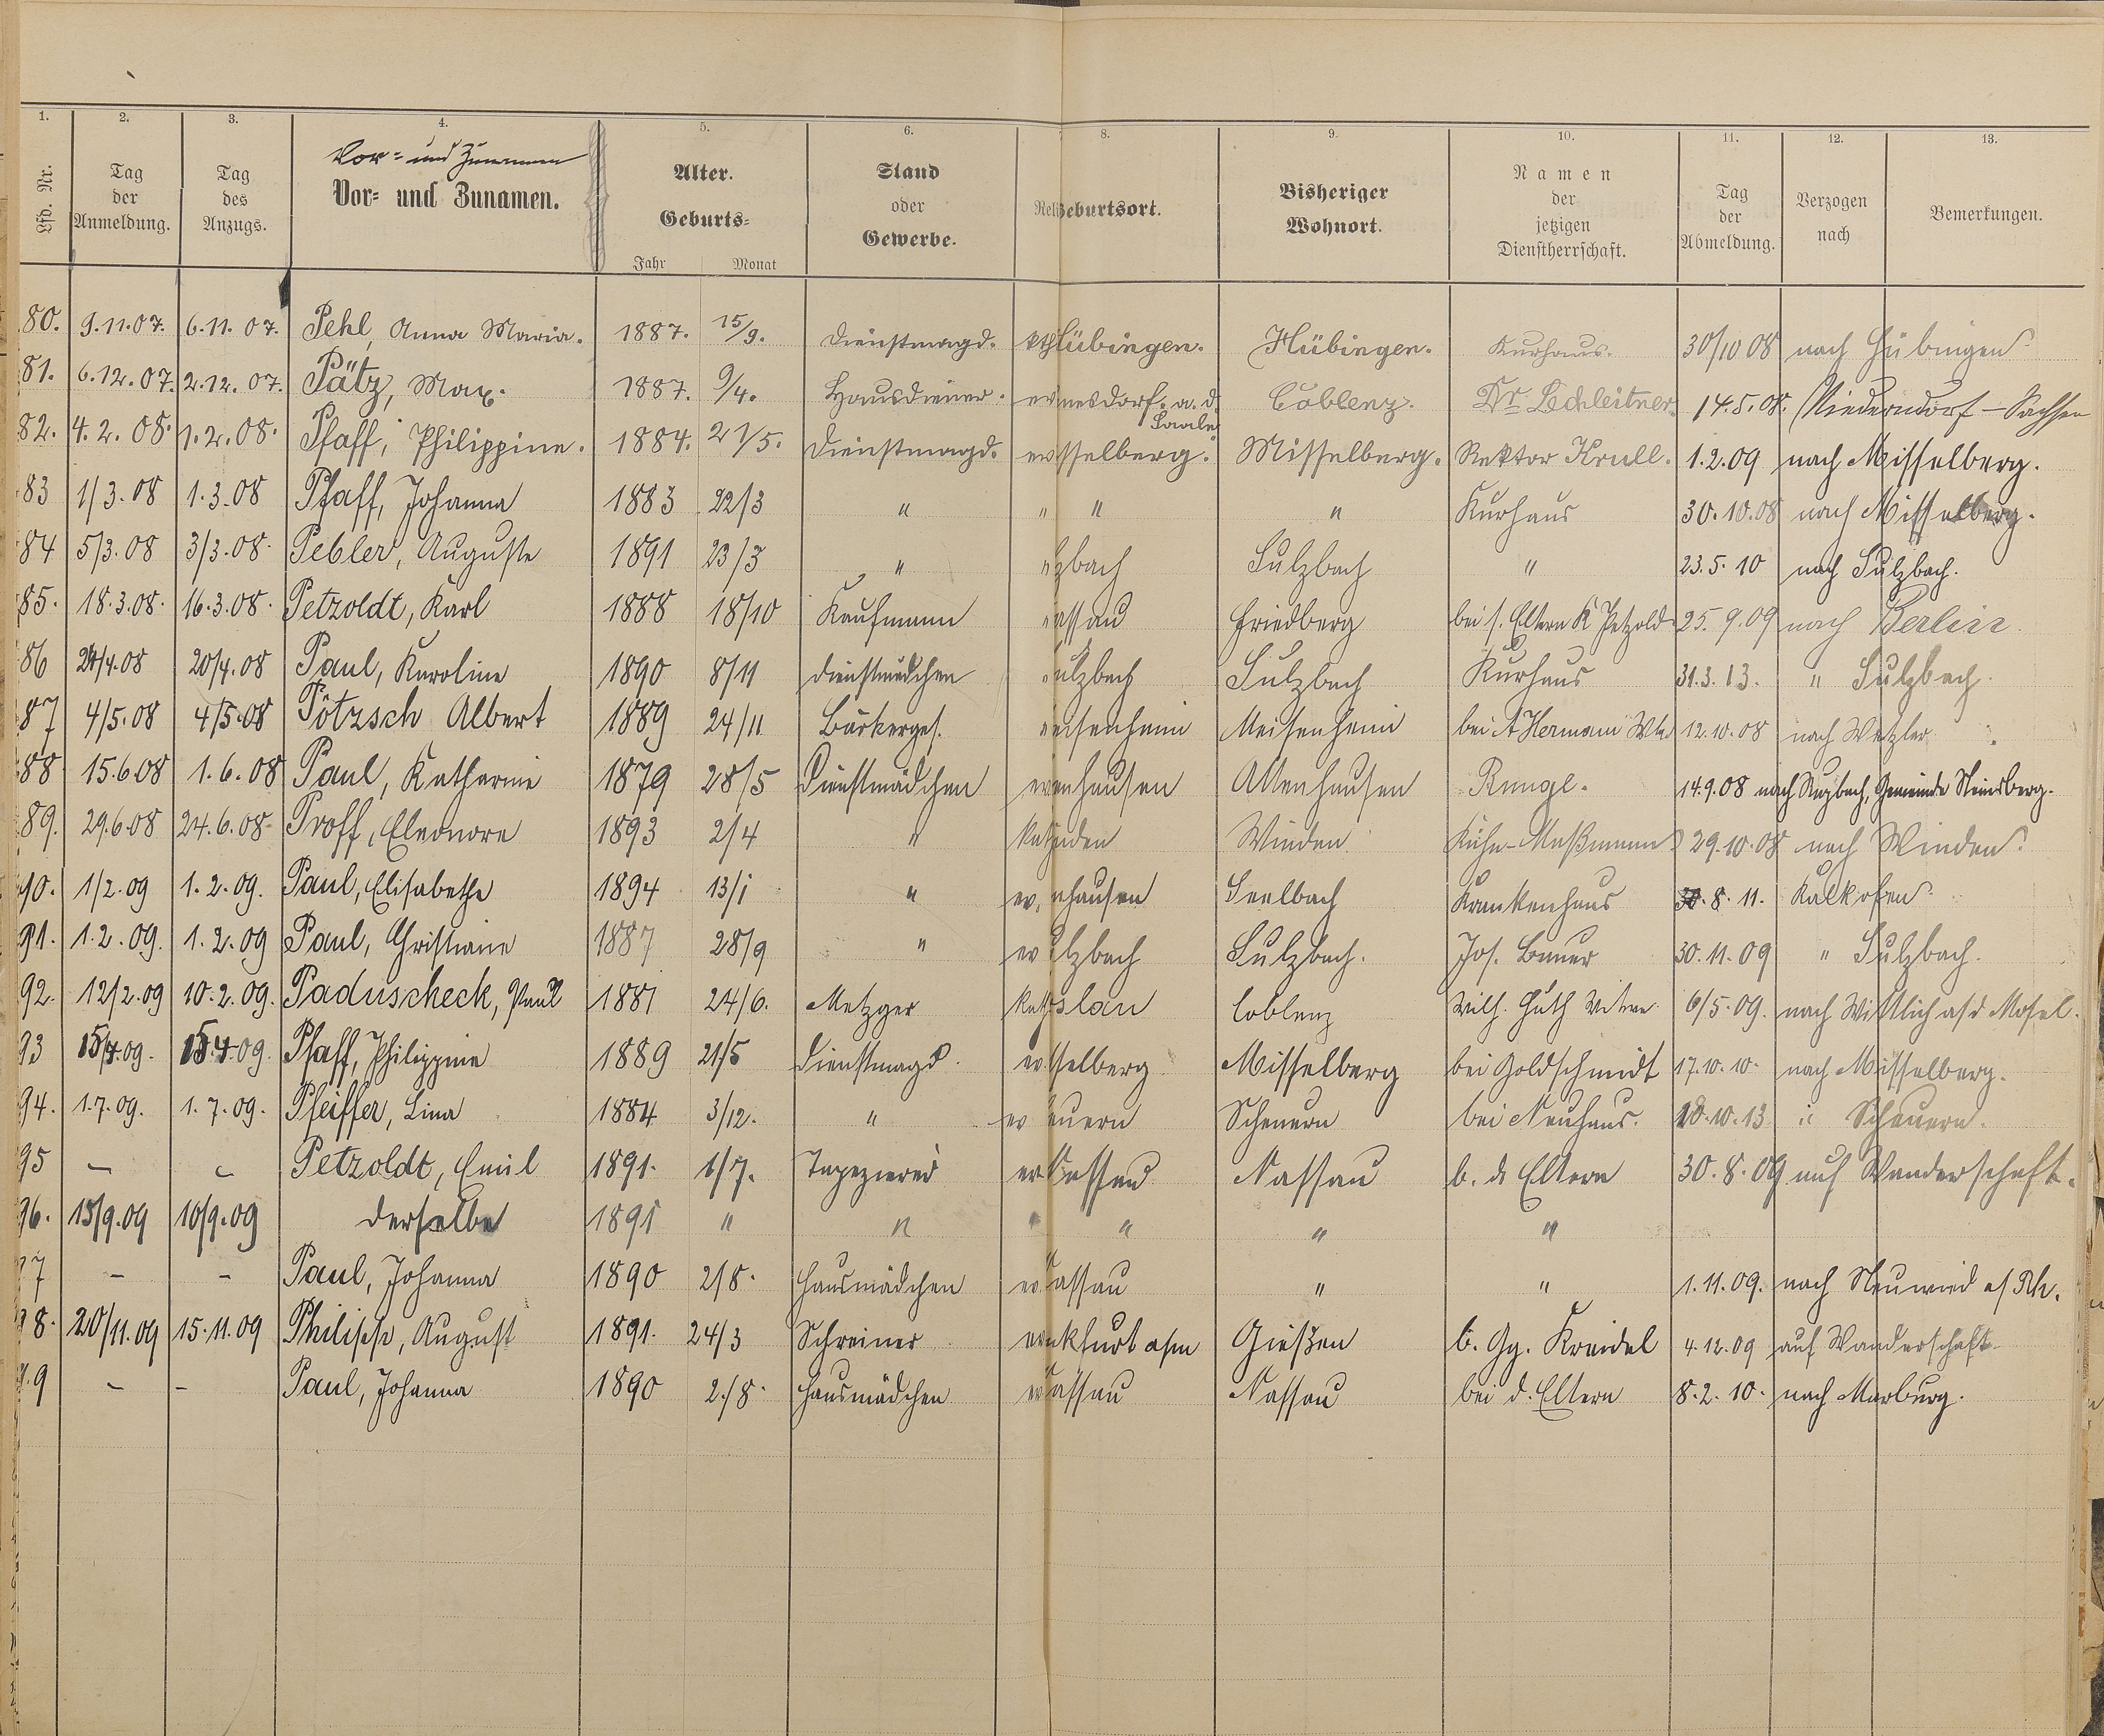 1. 2. 3. 4. 5. 6. 8. 9. 10. 11. 12. 13.
Lfd. Nr. Tag der Anmeldung. Tag des Anzugs. Vor= und Zunamen Vor= und Zunamen. Alter. Geburts= Jahr Monat Stand oder Gewerbe. Rel Geburtsort. Bisheriger Wohnort. Namen der jetzigen Dienstherrschaft. Tag der Abmeldung. Verzogen nach Bemerkungen.
80. 9.11.07. 6.11.07. Pehl, Anna Maria. 1887. 15/9. Dienstmagd. kth Hübingen. Hübingen. Kurhaus. 30/10 08 nach Hübingen
81. 6.12.07. 2.12.07. Pätz, Max. 1887. 9/4. Hausdiener. ev nesdorf. a. d. Saale Coblenz. Dr Lechleitner. 14.5.08. Niederndorf - Sachsen
82. 4.2.08. 1.2.08. Pfaff, Philippine. 1884. 21/5. Dienstmagd. ev sselberg. Misselberg. Rektor Krull. 1.2.09 nach Misselberg.
83 1/3.08 1.3.08 Pfaff, Johanna 1883 22/3 " " " " Kurhaus 30.10.08 nach Misselberg.
84 5/3.08 3/3.08. Pebler, Auguste 1891 23/3 " " zbach Sulzbach " 23.5.10 nach Sulzbach.
85. 18.3.08. 16.3.08. Petzoldt, Karl 1888 18/10 Kaufmann " assau Friedberg bei s. Eltern K Petzold 25.9.09 nach Berlin.
86 24/4.08 20/4.08 Paul, Karoline 1890 8/11 Dienstmädchen " ulzbach Sulzbach Kurhaus 31.3.13. " Sulzbach.
87 4/5.08 4/5.08 Pötzsch Albert 1889 24/11 Bäckerges. eisenheim Meisenheim bei A Hermann Wtw 12.10.08 nach Wetzlar.
88 15.6.08 1.6.08 Paul, Katharine 1879 28/5 Dienstmädchen ev enhausen Attenhausen Runge. 14.9.08 nach Gemeinde Steinsberg.
89. 29.6.08 24.6.08 Proff, Eleonore 1893 2/4 " kath nden Winden Kühn-Maßmann 29.10.08 nach Winden.
90. 1/2.09 1.2.09. Paul, Elisabethe 1894 13/1 " ev. nhausen Seelbach Krankenhaus 30.8.11. Kalkofen
91. 1.2.09. 1.2.09 Paul, Christiane 1887 28/9 " ev ulzbach Sulzbach. Jos. Bauer 30.11.09 " Sulzbach.
92. 12/2.09 10.2.09. Paduscheck, Paul 1881 24/6. Metzger kath slau Coblenz Wilh. Huth Witwe 6/5.09. nach Wittlich a/d Mosel.
93 15/4.09. 15.4.09. Pfaff, Philippine 1889 21/5 Dienstmagd. ev sselberg Misselberg bei Goldschmidt 17.10.10. nach Misselberg.
94. 1.7.09. 1.7.09. Pfeiffer, Lina 1884 3/12. " ev euern Scheuern bei Neuhaus. 18.10.13 " Scheuern.
95 - - Petzoldt, Emil 1891. 1/7. Tapezierer ev Nassau Nassau b. d. Eltern 30.8.09 auf Wanderschaft.
96. 15/9.09 10/9.09 derselbe 1891 " " " " " "
97 - - Paul, Johanna 1890 2/8. Hausmädchen ev. assau " " 1.11.09. nach Neuwied a/Rh.
98. 20/11.09 15.11.09 Philipp, August 1891. 24/3 Schreiner ev nkfurt a/m Gießen b. Gg. Kreidel 4.12.09 auf Wanderschaft
99 - - Paul, Johanna 1890 2./8. Hausmädchen ev assau Nassau bei d. Eltern 8.2.10. nach Marburg.